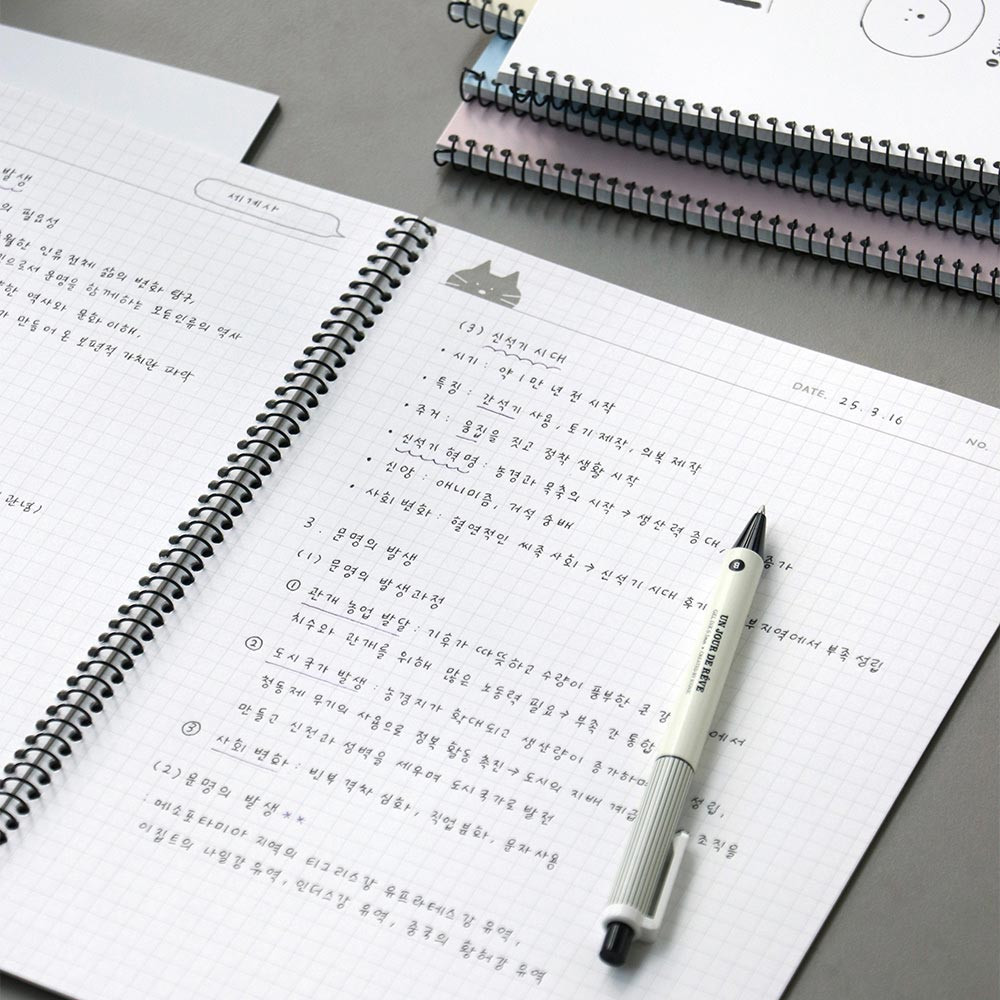 세계사
발생
의 필요성
월한 인류 전체 삶의 변화 탐구,
으로서 문명을 함께하는 모든 인류의 역사
한 역사와 문화 이해,
가 만들어 온 보편적 가치관 파악
관념)
DATE. 25.3.16
NO.
(3) 신석기 시대
• 시기 : 약 1만 년 전 시작
• 특징 : 간석기 사용, 토기 제작, 의복 제작
• 주거 : 움집을 짓고 정착 생활 시작
• 신석기 혁명 : 농경과 목축의 시작 → 생산력 증대, 증가
• 신앙 : 애니미즘, 거석 숭배
• 사회 변화 : 혈연적인 씨족 사회 → 신석기 시대 후기 부 지역에서 부족 성립
3. 문명의 발생
(1) 문명의 발생과정
① 관개 농업 발달 : 기후가 따뜻하고 수량이 풍부한 큰 강 에서
치수와 관개를 위해 많은 노동력 필요 → 부족 간 통합
② 도시국가 발생 : 농경지가 확대되고 생산량이 증가하며 성립,
청동제 무기의 사용으로 정복 활동 촉진 → 도시의 지배 계급 조직을
만들고 신전과 성벽을 세우며 도시국가로 발전
③ 사회 변화 : 빈부 격차 심화, 직업 분화, 문자 사용
(2) 문명의 발생 **
: 메소포타미아 지역의 티그리스강 유프라테스강 유역,
이집트의 나일강 유역, 인더스강 유역, 중국의 황허강 유역
8
UN JOUR DE RÊVE